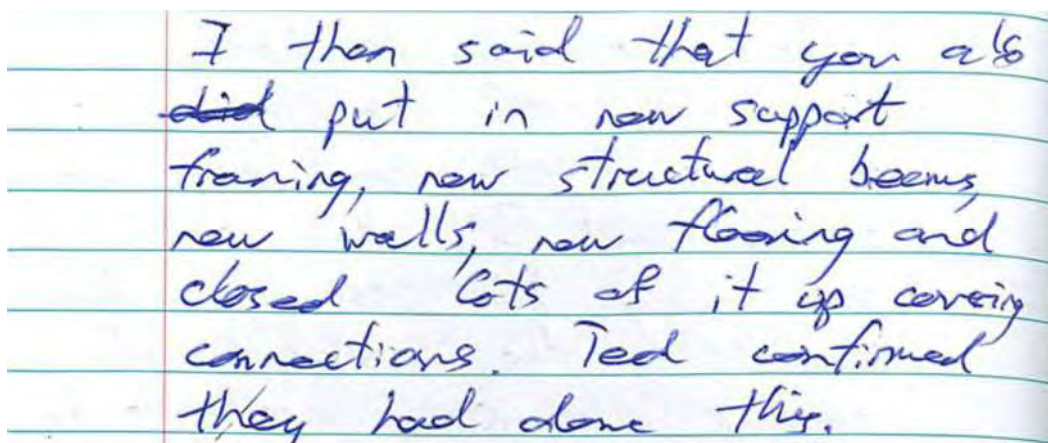 I then said that you also
did put in new support
framing, new structural beams,
new walls, new flooring and
closed lots of it up covering
connections. Ted confirmed
they had done this.